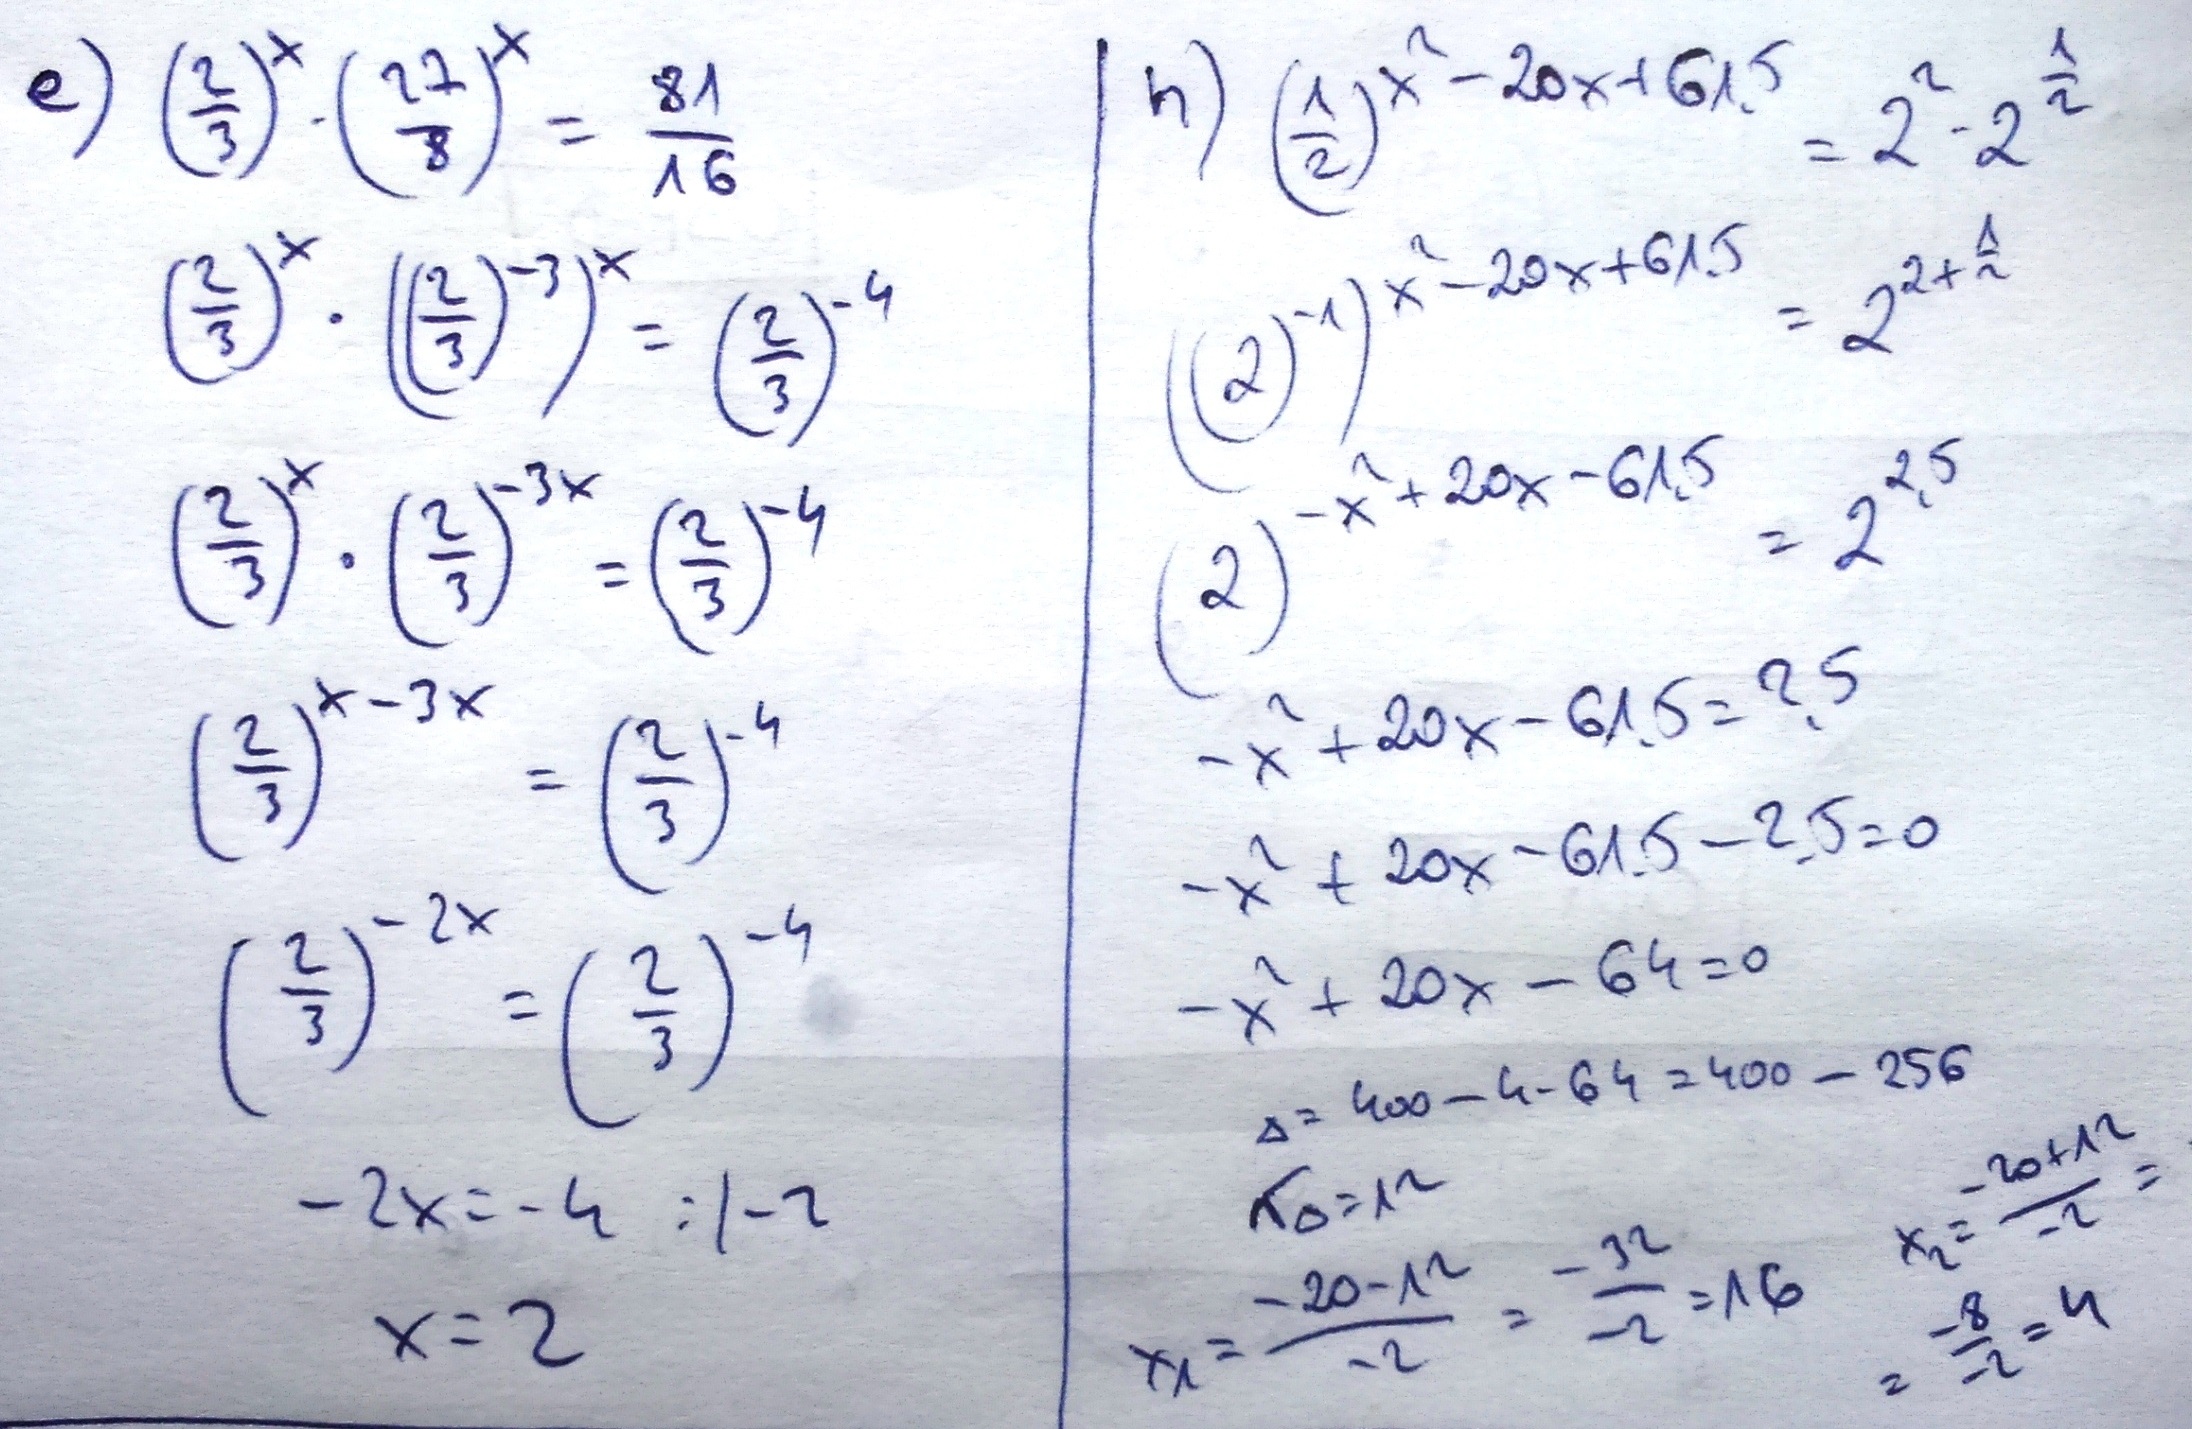 e) (2/3)^x · (27/8)^x = 81/16
(2/3)^x · ((2/3)^-3)^x = (2/3)^-4
(2/3)^x · (2/3)^-3x = (2/3)^-4
(2/3)^x-3x = (2/3)^-4
(2/3)^-2x = (2/3)^-4
-2x = -4 :/-2
x = 2
h) (1/2)^x²-20x+61,5 = 2² · 2^1/2
((2)^-1)^x²-20x+61,5 = 2^2+1/2
(2)^-x²+20x-61,5 = 2^2,5
-x²+20x-61,5=2,5
-x²+20x-61,5-2,5=0
-x²+20x-64=0
Δ=400-4·64=400-256
√Δ=12
x₁= -20-12/-2 = -32/-2 =16
x₂= -20+12/-2 =
= -8/-2 =4